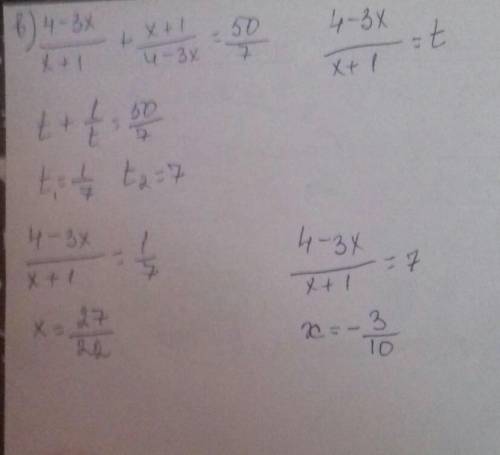 в) (4-3x)/(x+1) + (x+1)/(4-3x) = 50/7    (4-3x)/(x+1) = t
t + 1/t = 50/7
t₁ = 1/7  t₂ = 7
(4-3x)/(x+1) = 1/7    (4-3x)/(x+1) = 7
x = 27/22    x = -3/10